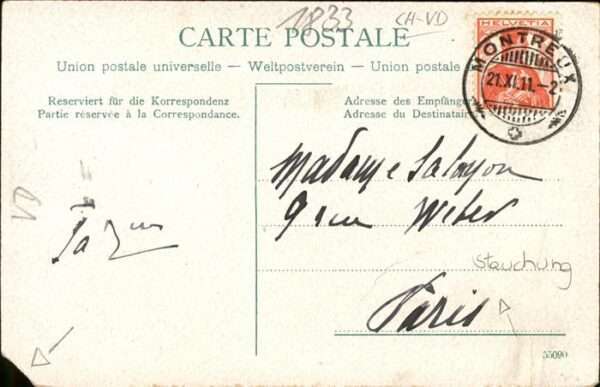 1833
CH-VD
CARTE POSTALE
HELVETIA
Union postale universelle – Weltpostverein – Union postale
MONTREUX
21.XI.11.–2
Reserviert für die Korrespondenz
Partie réservée à la Correspondance.
Adresse des Empfäng
Adresse du Destinatai
Madame
9 rue Weber
Stauchung
Paris
55090